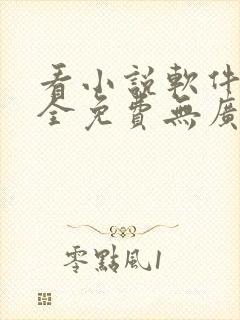 看小說軟件
全免費無廣
零點風1